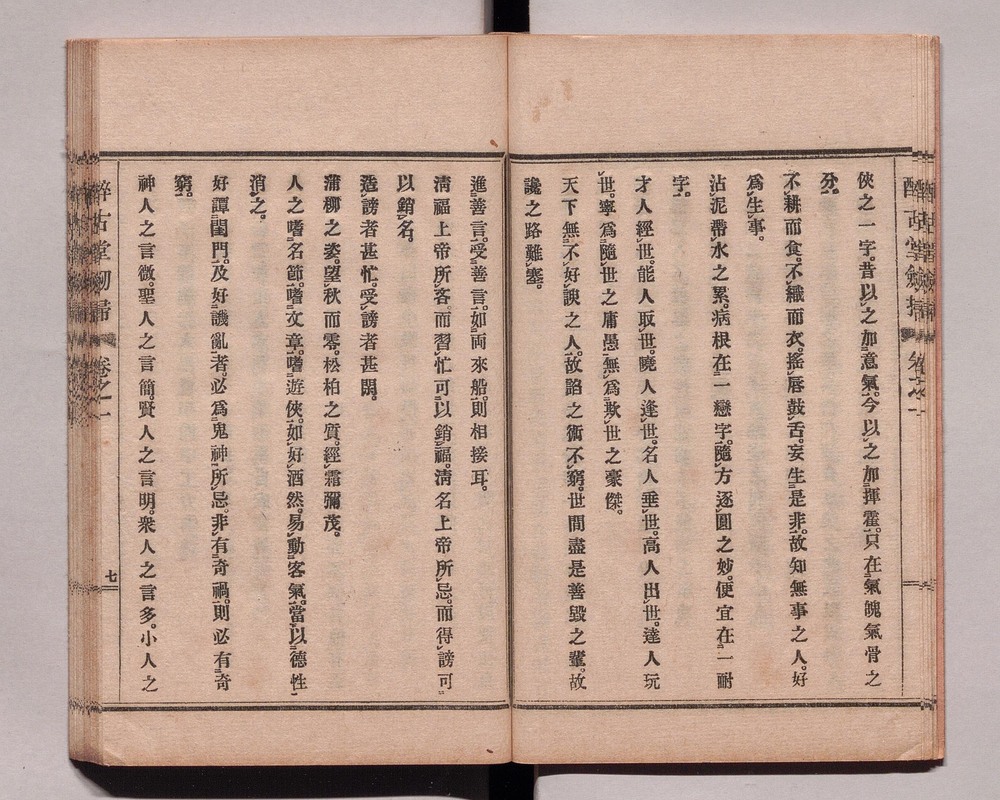 俠之一字。昔以之加意氣。今以之加揮霍。只在氣魄氣骨之
分。
不耕而食。不織而衣。搖唇鼓舌。妄生是非。故知無事之人。好
爲生事。
沾泥帶水之累。病根在一戀字。隨方逐圓之妙。便宜在一耐
字。
才人經世。能人取世。曉人逢世。名人垂世。高人出世。達人玩
世。寧爲隨世之庸愚。無爲欺世之豪傑。
天下無不好諛之人。故諂之術不窮。世間盡是善毀之輩。故
讒之路難塞。
進善言。受善言。如両來船。則相接耳。
淸福上帝所吝。而習忙可以銷福。淸名上帝所忌。而得謗可
以銷名。
造謗者甚忙。受謗者甚閑。
蒲柳之姿。望秋而零。松柏之質。經霜彌茂。
人之嗜名節。嗜文章。嗜遊俠。如好酒然。易動客氣。當以德性
消之。
好譚閨門。及好譏亂者。必爲鬼神所忌。非有奇禍。則必有奇
窮。
神人之言微。聖人之言簡。賢人之言明。衆人之言多。小人之
醉古堂劒掃
卷之一
七